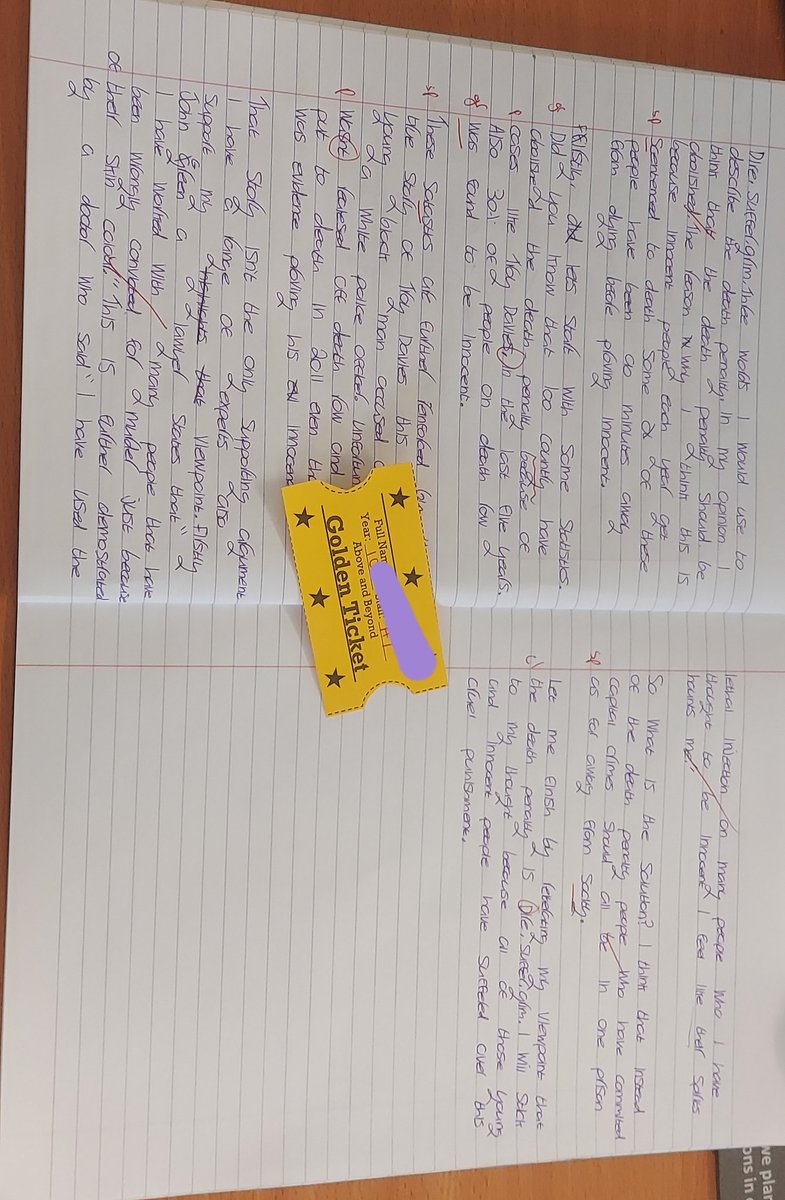 Dire, Suffer, grim. Three words I would use to
describe the death penalty. In my opinion I
think that the death penalty should be
abolished. The reason why I think this is
because innocent people each year get
sp
sentenced to death. Some of these
people have been 90 minutes away
from dying before proving innocent.
Firstly, lets Start With Some Statistics.
gr Did you know that 100 country have
abolished the death penalty because of
p cases like Troy Davies in the last five years.
Also of people on death row
gr Was found to be innocent.
sp These are further
the story of Troy Davies this
young black man accused
a White police officer.
p Wasnt realesed off death row and
put to death in 2011 even
Was evidence proving his
That story isn't the only supporting argument
I have a range of experts also
Support my viewpoint. Firstly
John Green a lawyer States that "
I have worked With many people that have
been wrongly for murder just because
of their Skin color." This is further demostrated
by a doctor Who said " I have used the
Full
Year: 10
Above and Beyond
Golden Ticket
lethal injection on many people Who I have
thought to be innocent I feel like their
haunts me."
So What is the Solution? I think that instead
of the death penalty people Who have commited
capital crimes Should all be in one prison
sp as far away from
Let me finish by my Viewpoint that
the death penalty is Dire, Suffer, grim. I Will Stick
to my thought because all of those young
and innocent people have Suffered over this
cruel punishment.
we plan
ons in